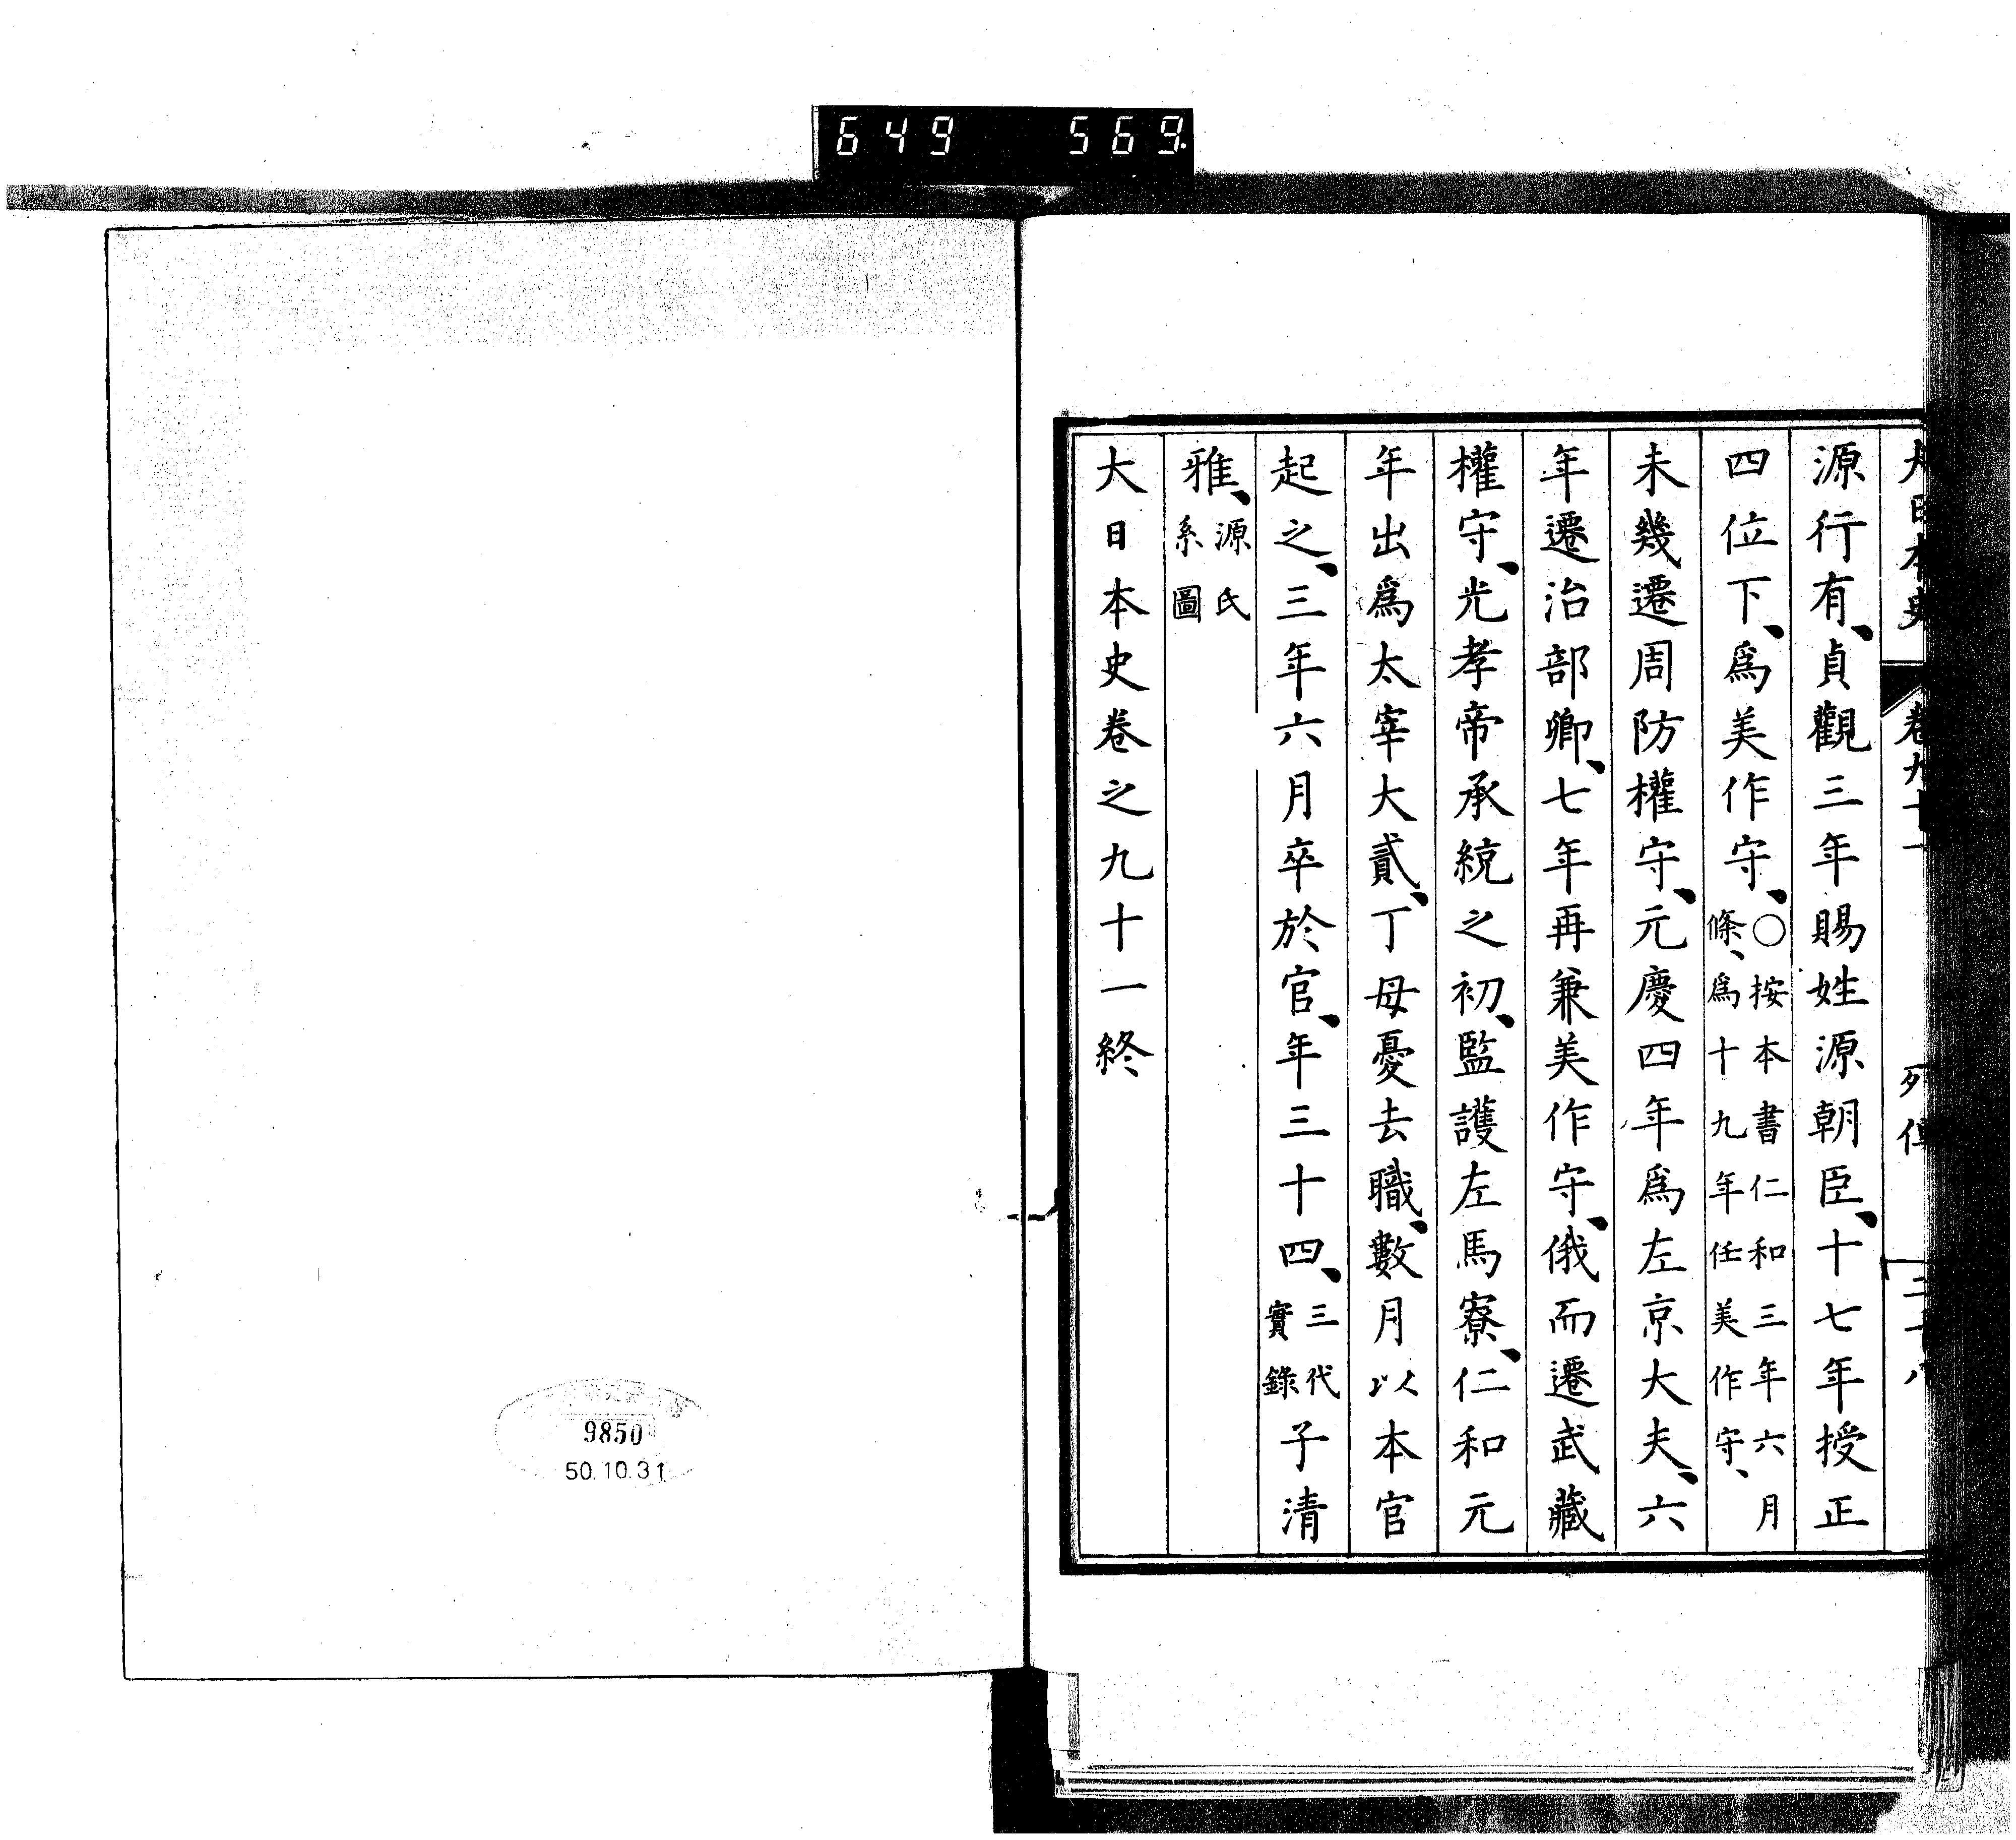 649 569
大日本史 卷九十一 列傳
源行有、貞觀三年賜姓源朝臣、十七年授正
四位下、爲美作守、〇按本書仁和三年六月條、爲十九年任美作守、
未幾遷周防權守、元慶四年爲左京大夫、六
年遷治部卿、七年再兼美作守、俄而遷武藏
權守、光孝帝承統之初、監護左馬寮、仁和元
年出爲太宰大貳、丁母憂去職、數月以本官
起之、三年六月卒於官、年三十四、三代實錄子清
雅、源氏系圖
大日本史卷之九十一終
9850
50.10.31